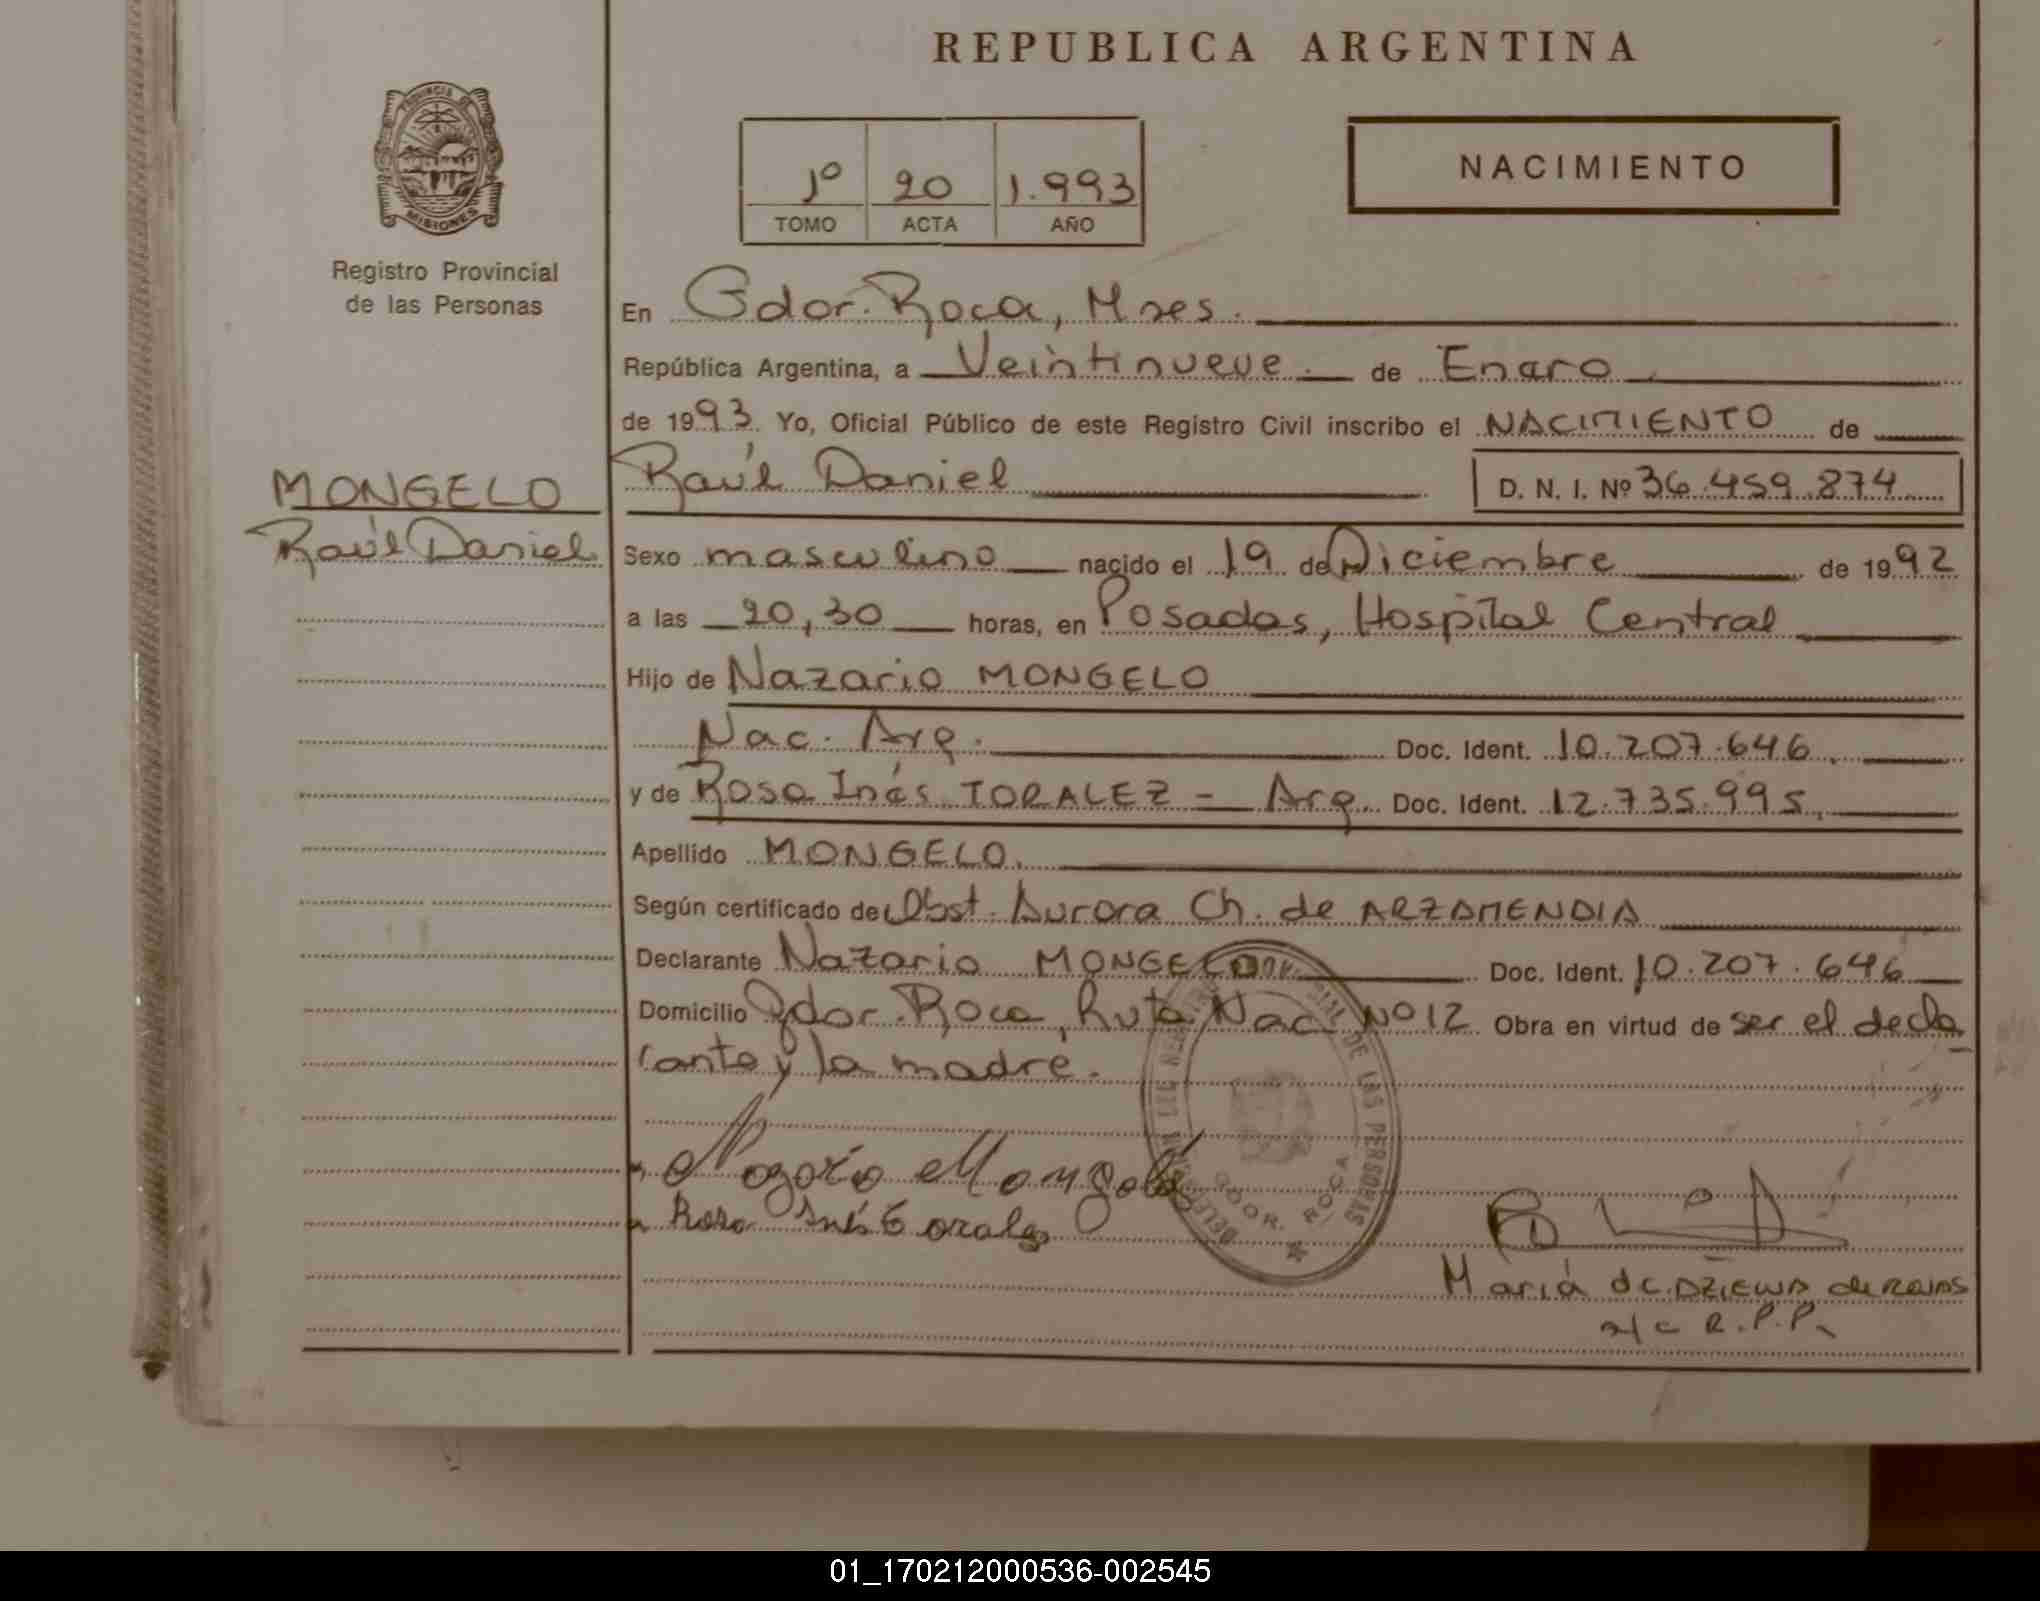 REPUBLICA ARGENTINA
PROVINCIA DE
MISIONES
Registro Provincial
de las Personas
1º 20 1.993
TOMO ACTA AÑO
NACIMIENTO
En Gdor. Roca, Mnes.
República Argentina, a Veintinueve de Enero
de 1993. Yo, Oficial Público de este Registro Civil inscribo el NACIMIENTO de
MONGELO
Raúl Daniel
Raúl Daniel D. N. I. Nº 36.459.874
Sexo masculino nacido el 19 de Diciembre de 1992
a las 20,30 horas, en Posadas, Hospital Central
Hijo de Nazario MONGELO
Nac. Arg. Doc. Ident. 10.207.646.
y de Rosa Inés TORALEZ - Arg. Doc. Ident. 12.735.995.
Apellido MONGELO.
Según certificado de Obst. Aurora Ch. de ARZAMENDIA
Declarante Nazario MONGELO Doc. Ident. 10.207.646
Domicilio Gdor. Roca, Ruta Nac. Nº 12 Obra en virtud de ser el decla
rante y la madre.
DE LAS PERSONAS
GDOR. ROCA
Rosa Inés
María de C. DZIEWA de ROJAS
a/c R.P.P.
01_170212000536-002545